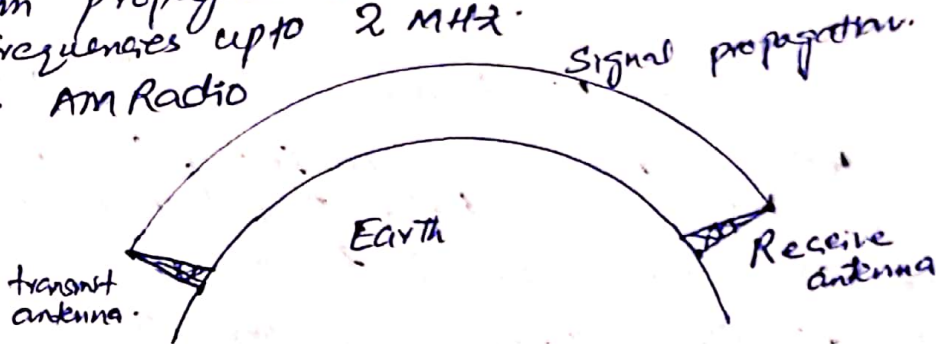 frequencies upto 2 MHz.
AM Radio
Signal propagation.
Earth
transmit
antenna.
Receive
antenna